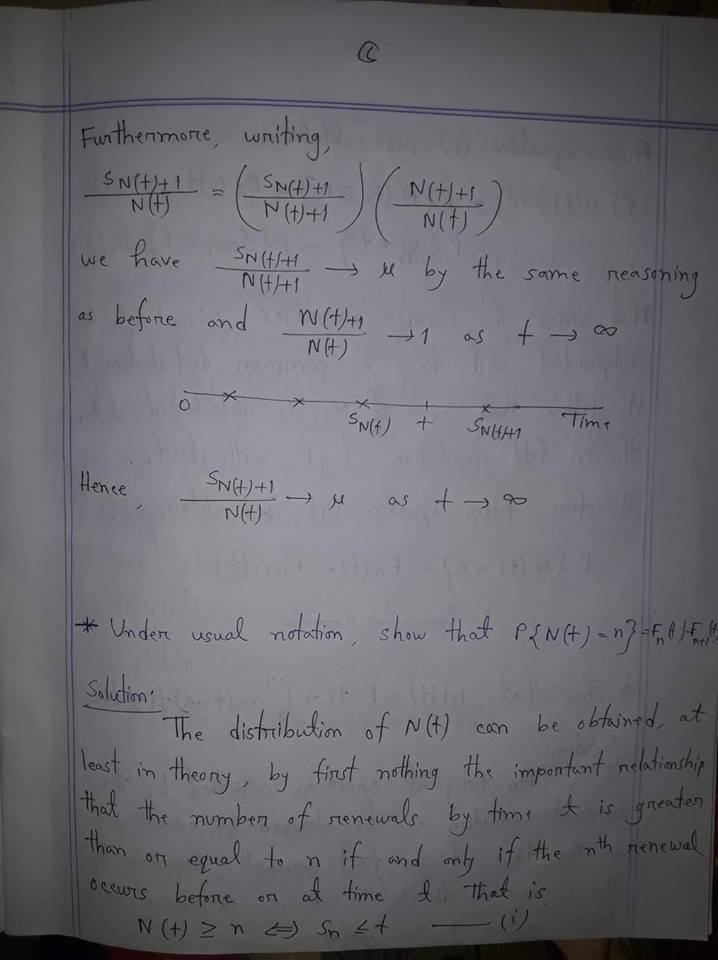 6
Furthermore, writing,
S_{N(t)+1} / N(t) = (S_{N(t)+1} / N(t)+1) (N(t)+1 / N(t))
we have S_{N(t)+1} / N(t)+1 → μ by the same reasoning
as before and N(t)+1 / N(t) → 1 as t → ∞
0 S_{N(t)} t S_{N(t)+1} Time
Hence, S_{N(t)+1} / N(t) → μ as t → ∞
* Under usual notation, show that P{N(t) = n} = F_n(t) - F_{n+1}(t)
Solution:
The distribution of N(t) can be obtained, at
least in theory, by first nothing the important relationship
that the number of renewals by time t is greater
than or equal to n if and only if the nth renewal
occurs before or at time t. That is,
N(t) ≥ n ⇔ S_n ≤ t —— (i)